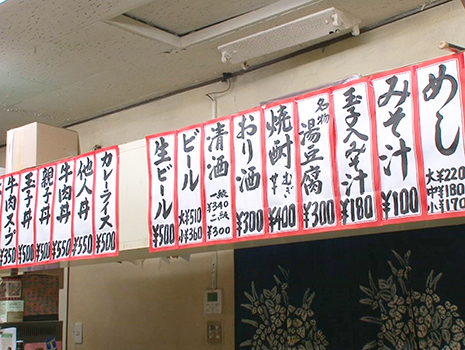 めし
大 ¥220
中 ¥180
小 ¥170
みそ汁
¥100
玉子入みそ汁
¥180
名物
湯豆腐
¥300
焼酎
むぎ
芋
¥400
おり酒
¥300
清酒
一級
¥340
二級
¥300
ビール
大 ¥510
小 ¥360
生ビール
¥500
カレーライス
¥500
他人丼
¥550
牛肉丼
¥550
親子丼
¥500
玉子丼
¥500
牛肉スープ
¥350